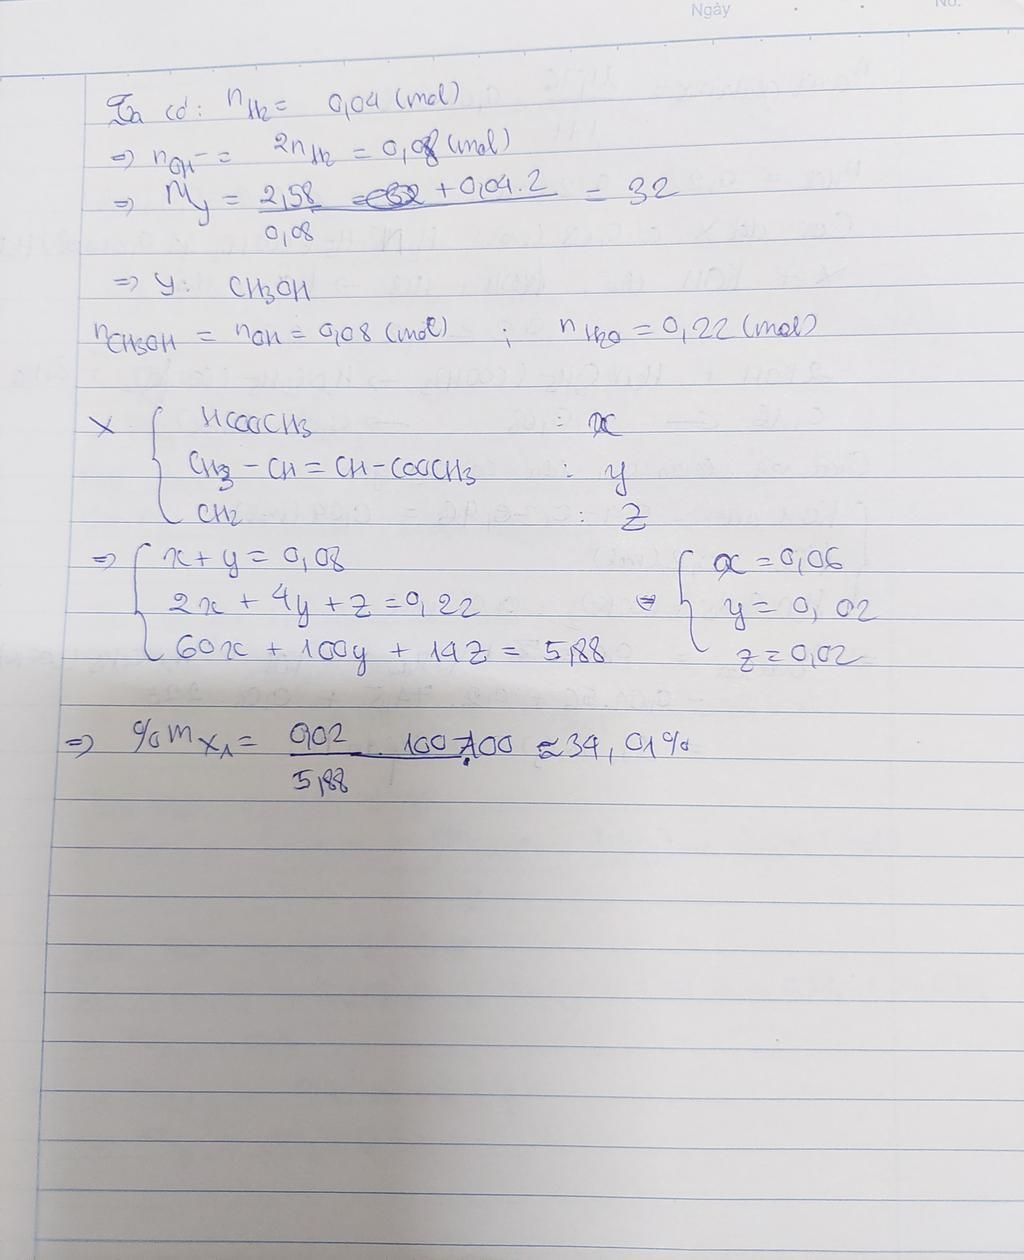 Ngày No.
Ta có: nH2 = 0,04 (mol)
=> nOH- = 2nH2 = 0,08 (mol)
=> My = 2,58 + 0,04.2 / 0,08 = 32
=> Y: CH3OH
nCH3OH = nOH = 0,08 (mol) ; nH2O = 0,22 (mol)
X { HCOOCH3 : x
CH3 - CH = CH - COOCH3 : y
CH2 : z
=> { x + y = 0,08
2x + 4y + z = 0,22
60x + 100y + 14z = 5,88
<=> { x = 0,06
y = 0,02
z = 0,02
=> %mX1 = 0,02 / 5,88 . 100.100 ≈ 34,01%